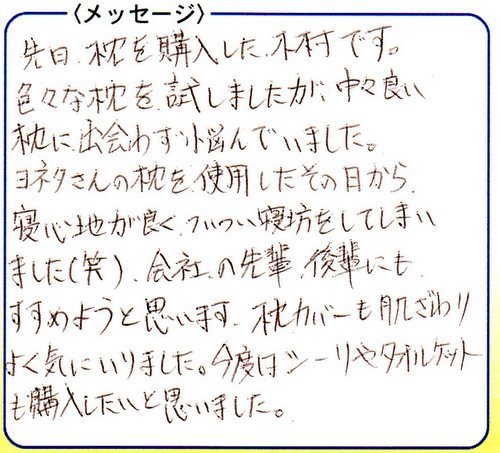 〈メッセージ〉
先日、枕を購入した、木村です。
色々な枕を、試しましたが、中々良い
枕に、出会わず、悩んでいました。
ヨネタさんの枕を、使用したその日から、
寝心地が良く、ついつい寝坊をしてしまい
ました(笑)、会社、の先輩、後輩にも、
すすめようと思います、枕カバーも肌ざわり
よく気にいりました。今度はシーツやタオルケット
も購入したいと思いました。